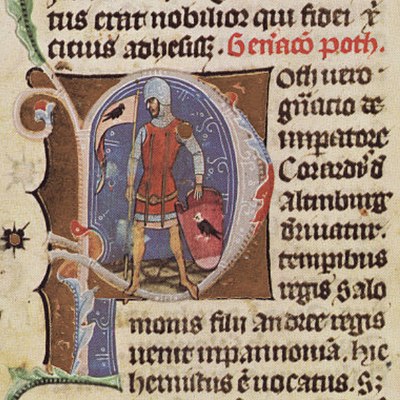 tus erat nobilior qui fidei x̄
citius adhesissꝫ. Geñacō poth.
Poth uero
gñacio de
imꝑatore
Corardi d̄
altinburg
diriuatur.
temꝑibus
regis Salo
monis filii andree regis
uenit in pannoniā. Hic
hernistus ē uocatus. Sꝫ